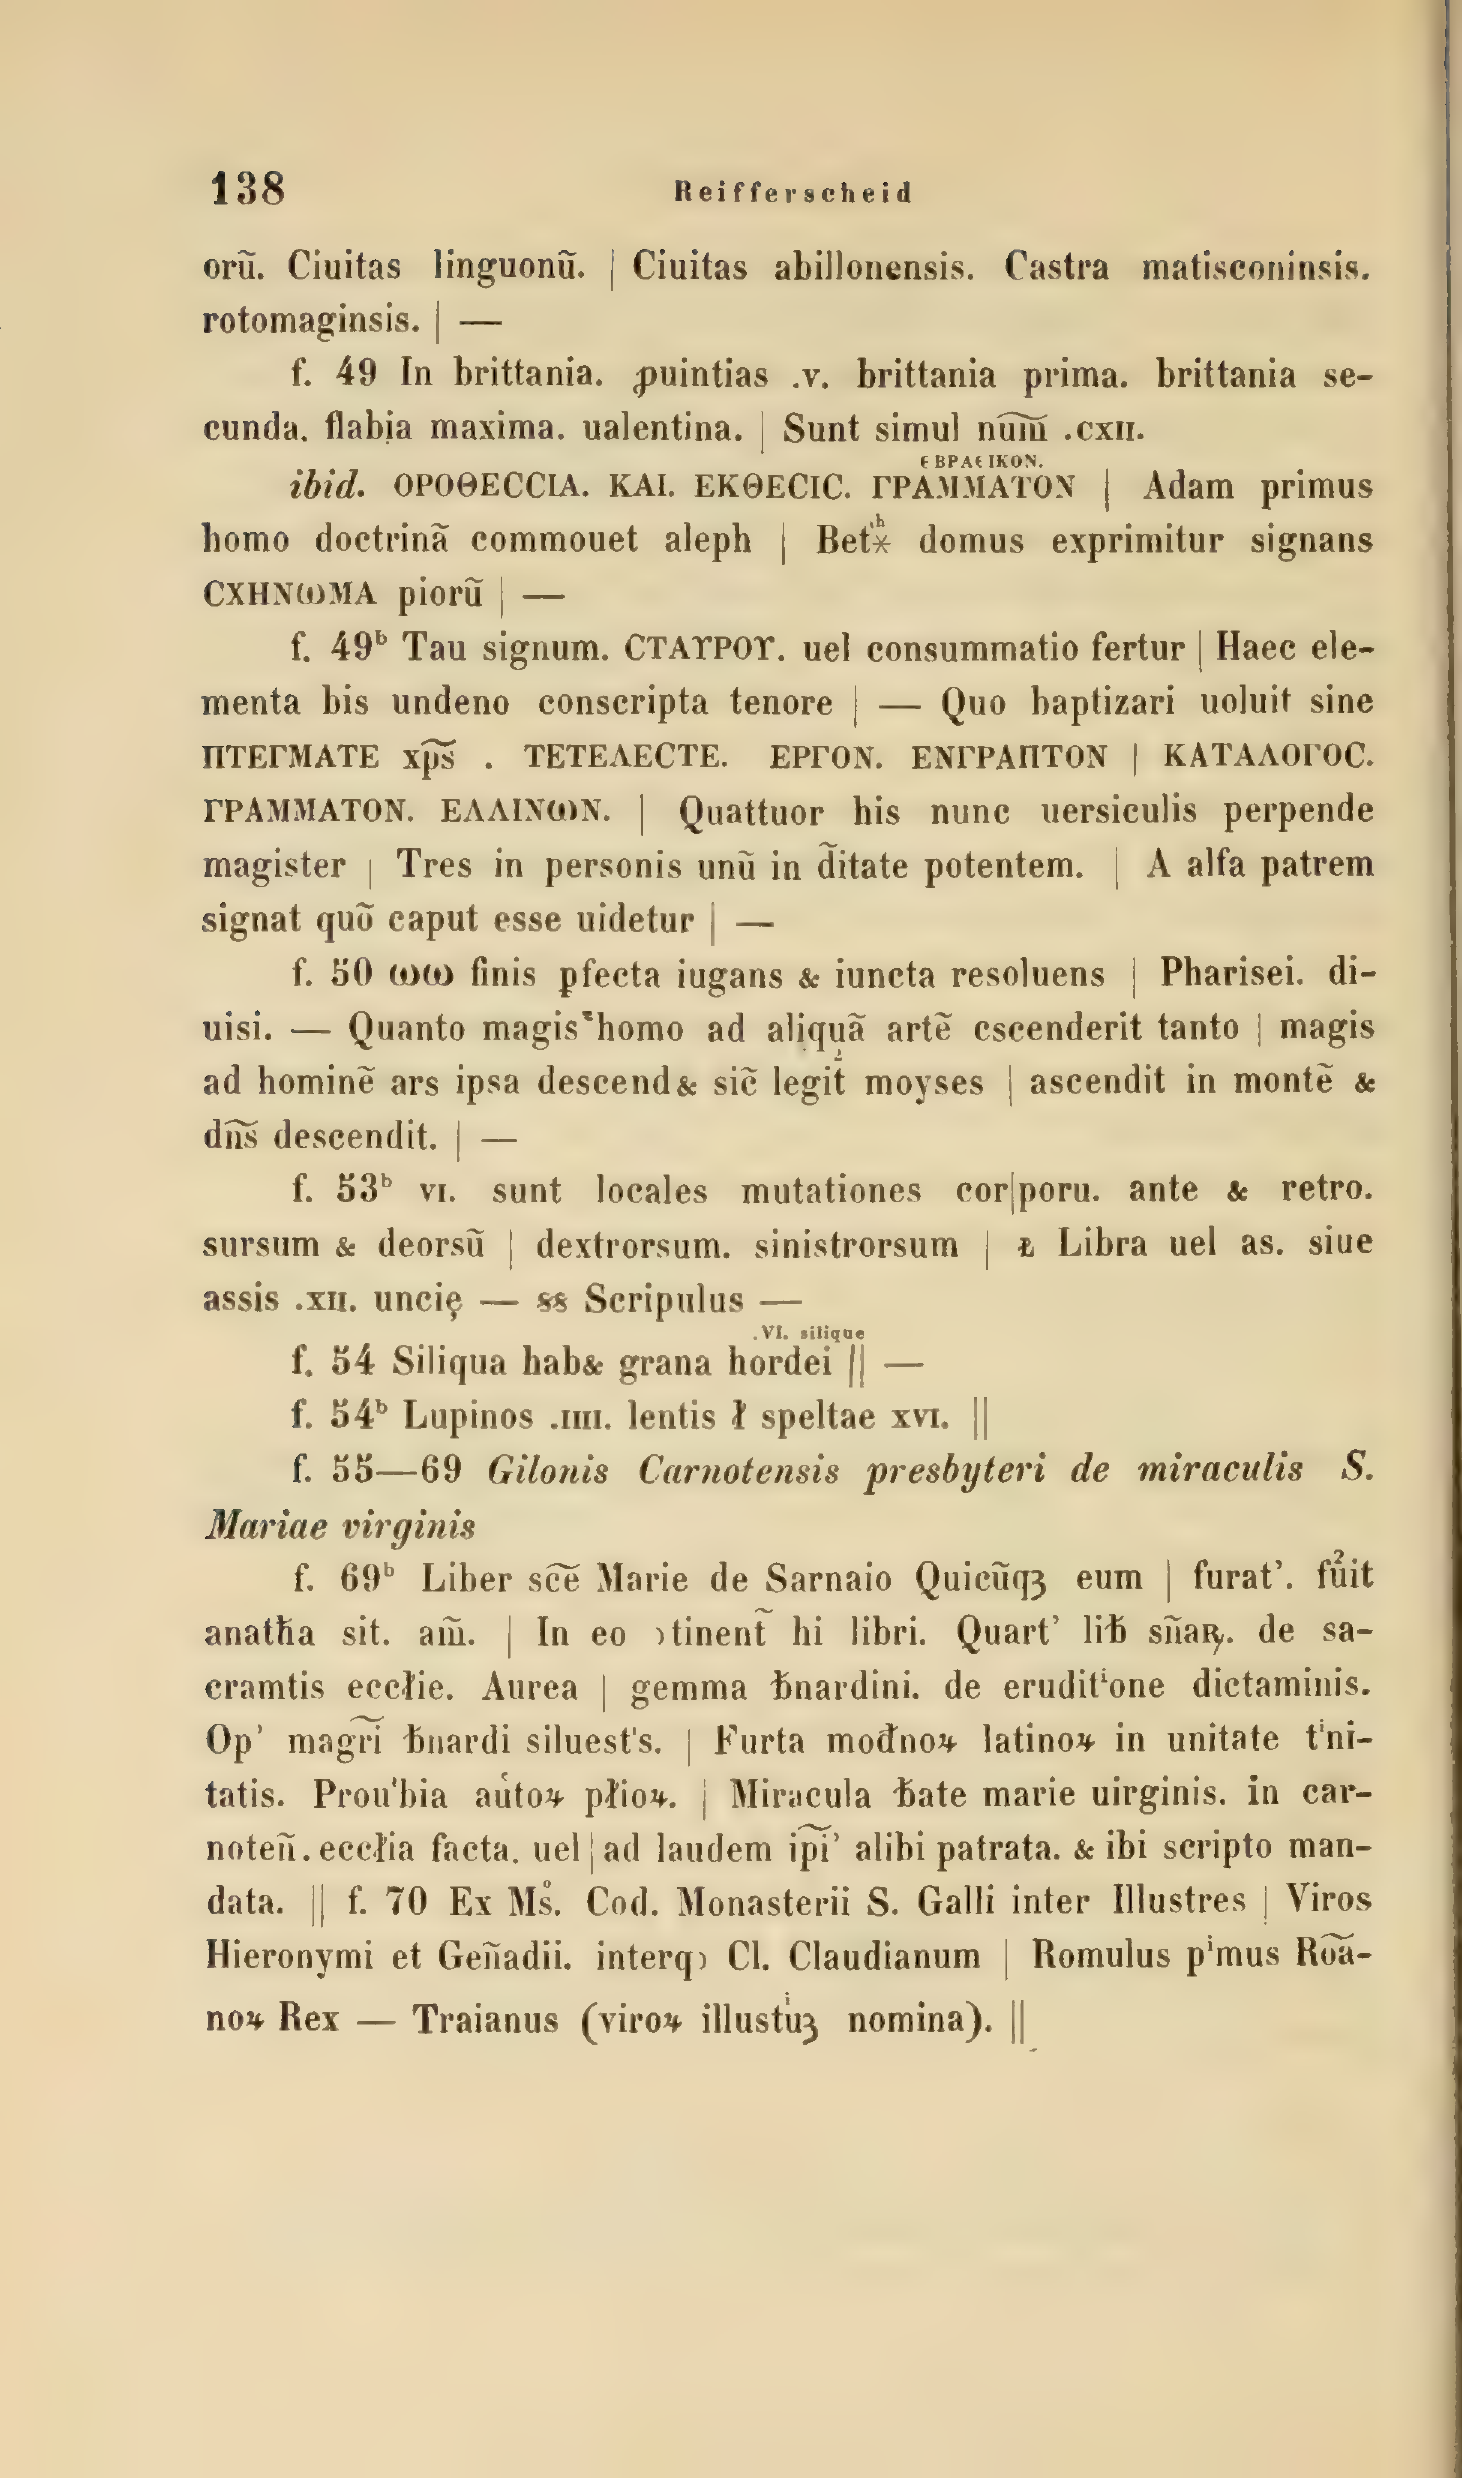 138 Reifferscheid
orũ. Ciuitas linguonũ. | Ciuitas abillonensis. Castra matisconinsis.
rotomaginsis. | —
f. 49 In brittania. ꝓuintias .v. brittania prima. brittania se-
cunda. flabia maxima. ualentina. | Sunt simul num͠ .cxii.
ЄΒΡΑЄΙΚΟΝ.
ibid. ΟΡΟΘΕCCΙΑ. ΚΑΙ. ΕΚΘΕCΙC. ΓΡΑΜΜΑΤΟΝ | Adam primus
homo doctrinã commouet aleph | Bet⁎ʰ domus exprimitur signans
CΧΗΝωΜΑ piorũ | —
f. 49ᵇ Tau signum. CΤΑΥΡΟΥ. uel consummatio fertur | Haec ele-
menta bis undeno conscripta tenore | — Quo baptizari uoluit sine
ΠΤΕΓΜΑΤΕ xp͠s . ΤΕΤΕΛΕCΤΕ. ΕΡΓΟΝ. ΕΝΓΡΑΠΤΟΝ | ΚΑΤΑΛΟΓΟC.
ΓΡΑΜΜΑΤΟΝ. ΕΛΛΙΝωΝ. | Quattuor his nunc uersiculis perpende
magister | Tres in personis unũ in d͠itate potentem. | A alfa patrem
signat quõ caput esse uidetur | —
f. 50 ωω finis ꝑfecta iugans & iuncta resoluens | Pharisei. di-
uisi. — Quanto magis homo ad aliquã artẽ escenderit tanto | magis
ad hominẽ ars ipsa descend& sic̃ legit moyses | ascendit in montẽ &
dn͠s descendit. | —
f. 53ᵇ vi. sunt locales mutationes cor|poru. ante & retro.
sursum & deorsũ | dextrorsum. sinistrorsum | Ł Libra uel as. siue
assis .xii. uncię — ss Scripulus —
.VI. silique
f. 54 Siliqua hab& grana hordei || —
f. 54ᵇ Lupinos .iiii. lentis ł speltae xvi. ||
f. 55—69 Gilonis Carnotensis presbyteri de miraculis S.
Mariae virginis
f. 69ᵇ Liber sc͠e Marie de Sarnaio Quicũqꝫ eum | furat’. fu²it
anatħa sit. am̃. | In eo ɔtinent͠ hi libri. Quart’ liƀ sñaꝶ. de sa-
cramtis eccłie. Aurea | gemma ƀnardini. de eruditⁱone dictaminis.
Op’ magr͠i ƀnardi siluest's. | Furta mođnoꝝ latinoꝝ in unitate tⁱni-
tatis. Prou'bia autoꝝ płioꝝ. | Miracula ƀate marie uirginis. in car-
noteñ. eccłia facta. uel | ad laudem ip͠i’ alibi patrata. & ibi scripto man-
data. || f. 70 Ex Ms̊. Cod. Monasterii S. Galli inter Illustres | Viros
Hieronymi et Geñadii. interqɔ Cl. Claudianum | Romulus pⁱmus Ro͠a-
noꝝ Rex — Traianus (viroꝝ illustⁱuꝫ nomina). ||